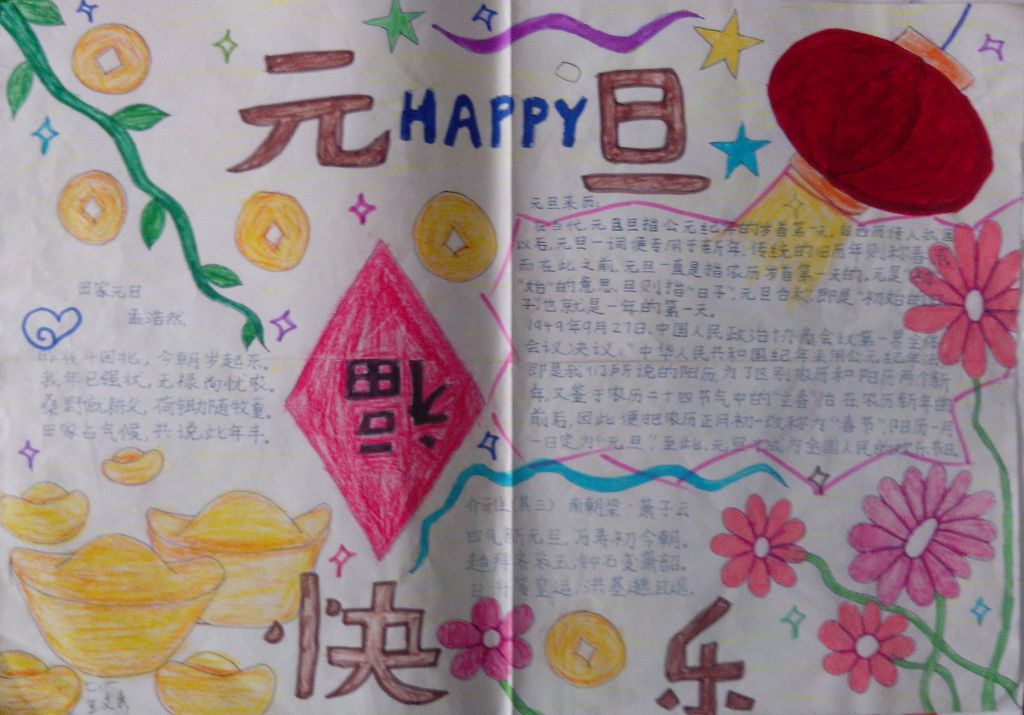 元 HAPPY 旦
元旦来历:
在当代,元旦指公元纪年的岁首第一天。自西历传入我国
以后,元旦一词便专用于新年,传统的旧历年则称春节
而在此之前,元旦一直是指农历岁首第一天的。元是
"始"的意思,旦则指"日子",元旦合称即是"初始的日
子",也就是一年的第一天。
1949年9月27日,中国人民政治协商会议第一届全体
会议决议:"中华人民共和国纪年采用公元纪年法
即是我们所说的阳历,为了区别农历和阳历两个新
年,又鉴于农历二十四节气中的"立春"恰在农历新年的
前后,因此便把农历正月初一改称为"春节",阳历一月
一日定为"元旦",至此,元旦才成为全国人民的欢乐节日
田家元日
孟浩然
昨夜斗回北,今朝岁起东。
我年已强壮,无禄尚忧农。
桑野就耕父,荷锄随牧童。
田家占气候,共说此年丰。
福
介雅(其三) 南朝梁·萧子云
四气新元旦,万寿初今朝。
趋拜齐衮玉,钟石变箫韶。
日升等皇运,洪基邈且遥。
快 乐